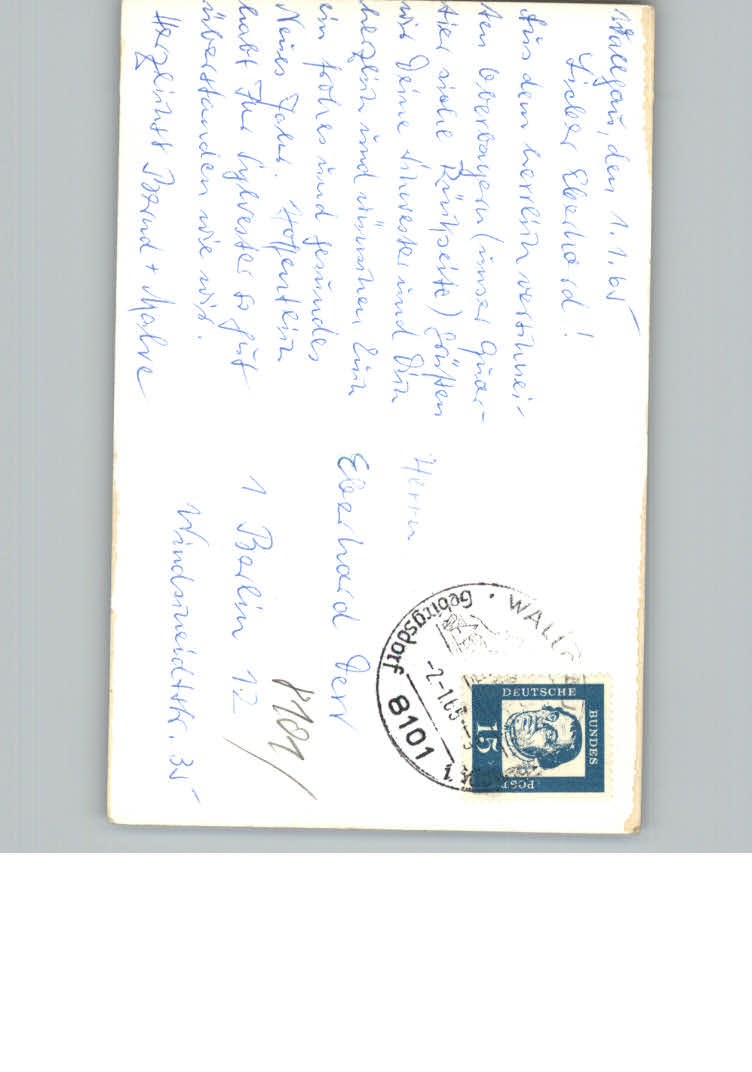 Wallgau, den 1.1.65
Lieber Eberhard!
Aus dem herrlich verschnei-
ten Oberbayern (unser Quar-
tier siehe Rückseite) grüßen
wir Deine Schwester und Dich
herzlich und wünschen Euch
ein frohes und gesundes
Neues Jahr. Hoffentlich
habt Ihr Sylvester so gut
überstanden wie wir.
Herzlichst Bernd + Malve
Herrn
Eberhard Derr
1 Berlin 12
Windscheidtstr. 35
8101
WALLG
Gebirgsdorf
-2-1.65-
8101
DEUTSCHE
BUNDES
POST
15